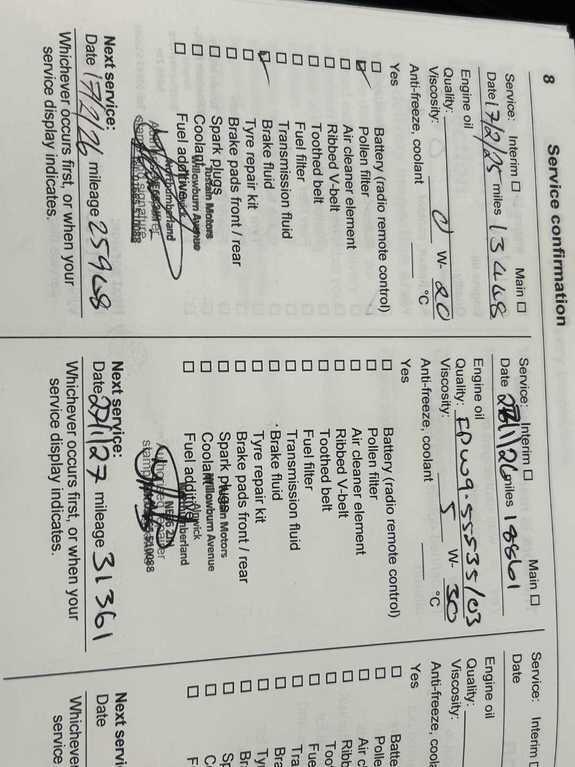 8
Service confirmation
Service: Interim ☐ Main ☐
Date 17/2/25 miles 13468
Engine oil
Quality:
Viscosity: 0 W- 20
Anti-freeze, coolant °C
Yes
☐ Battery (radio remote control)
☑ Pollen filter
☐ Air cleaner element
☐ Ribbed V-belt
☐ Toothed belt
☐ Fuel filter
☐ Transmission fluid
☑ Brake fluid
☐ Tyre repair kit
☐ Brake pads front / rear
☐ Spark plugs
☐ Coolant
☐ Fuel additive
Turbian Motors
Willowburn Avenue
Alnwick
Northumberland
stamp and signature
Next service:
Date 17/2/26 mileage 25968
Whichever occurs first, or when your
service display indicates.
Service: Interim ☐ Main ☐
Date 22/1/26 miles 18861
Engine oil
Quality: FPW9.55535/03
Viscosity: 5 W- 30
Anti-freeze, coolant °C
Yes
☐ Battery (radio remote control)
☐ Pollen filter
☐ Air cleaner element
☐ Ribbed V-belt
☐ Toothed belt
☐ Fuel filter
☐ Transmission fluid
☐ Brake fluid
☐ Tyre repair kit
☐ Brake pads front / rear
☐ Spark plugs
☐ Coolant
☐ Fuel additive
Motors
Willowburn Avenue
Alnwick
Northumberland
NE66 2
510088
Next service:
Date 22/1/27 mileage 31361
Whichever occurs first, or when your
service display indicates.
Service: Interim
Date
Engine oil
Quality:
Viscosity:
Anti-freeze, coola
Yes
☐ Batte
☐ Polle
☐ Air c
☐ Ribb
☐ Too
☐ Fue
☐ Tra
☐ Bra
☐ Ty
☐ Br
☐ Sp
☐ C
☐ F
Next servi
Date
Whicheve
service